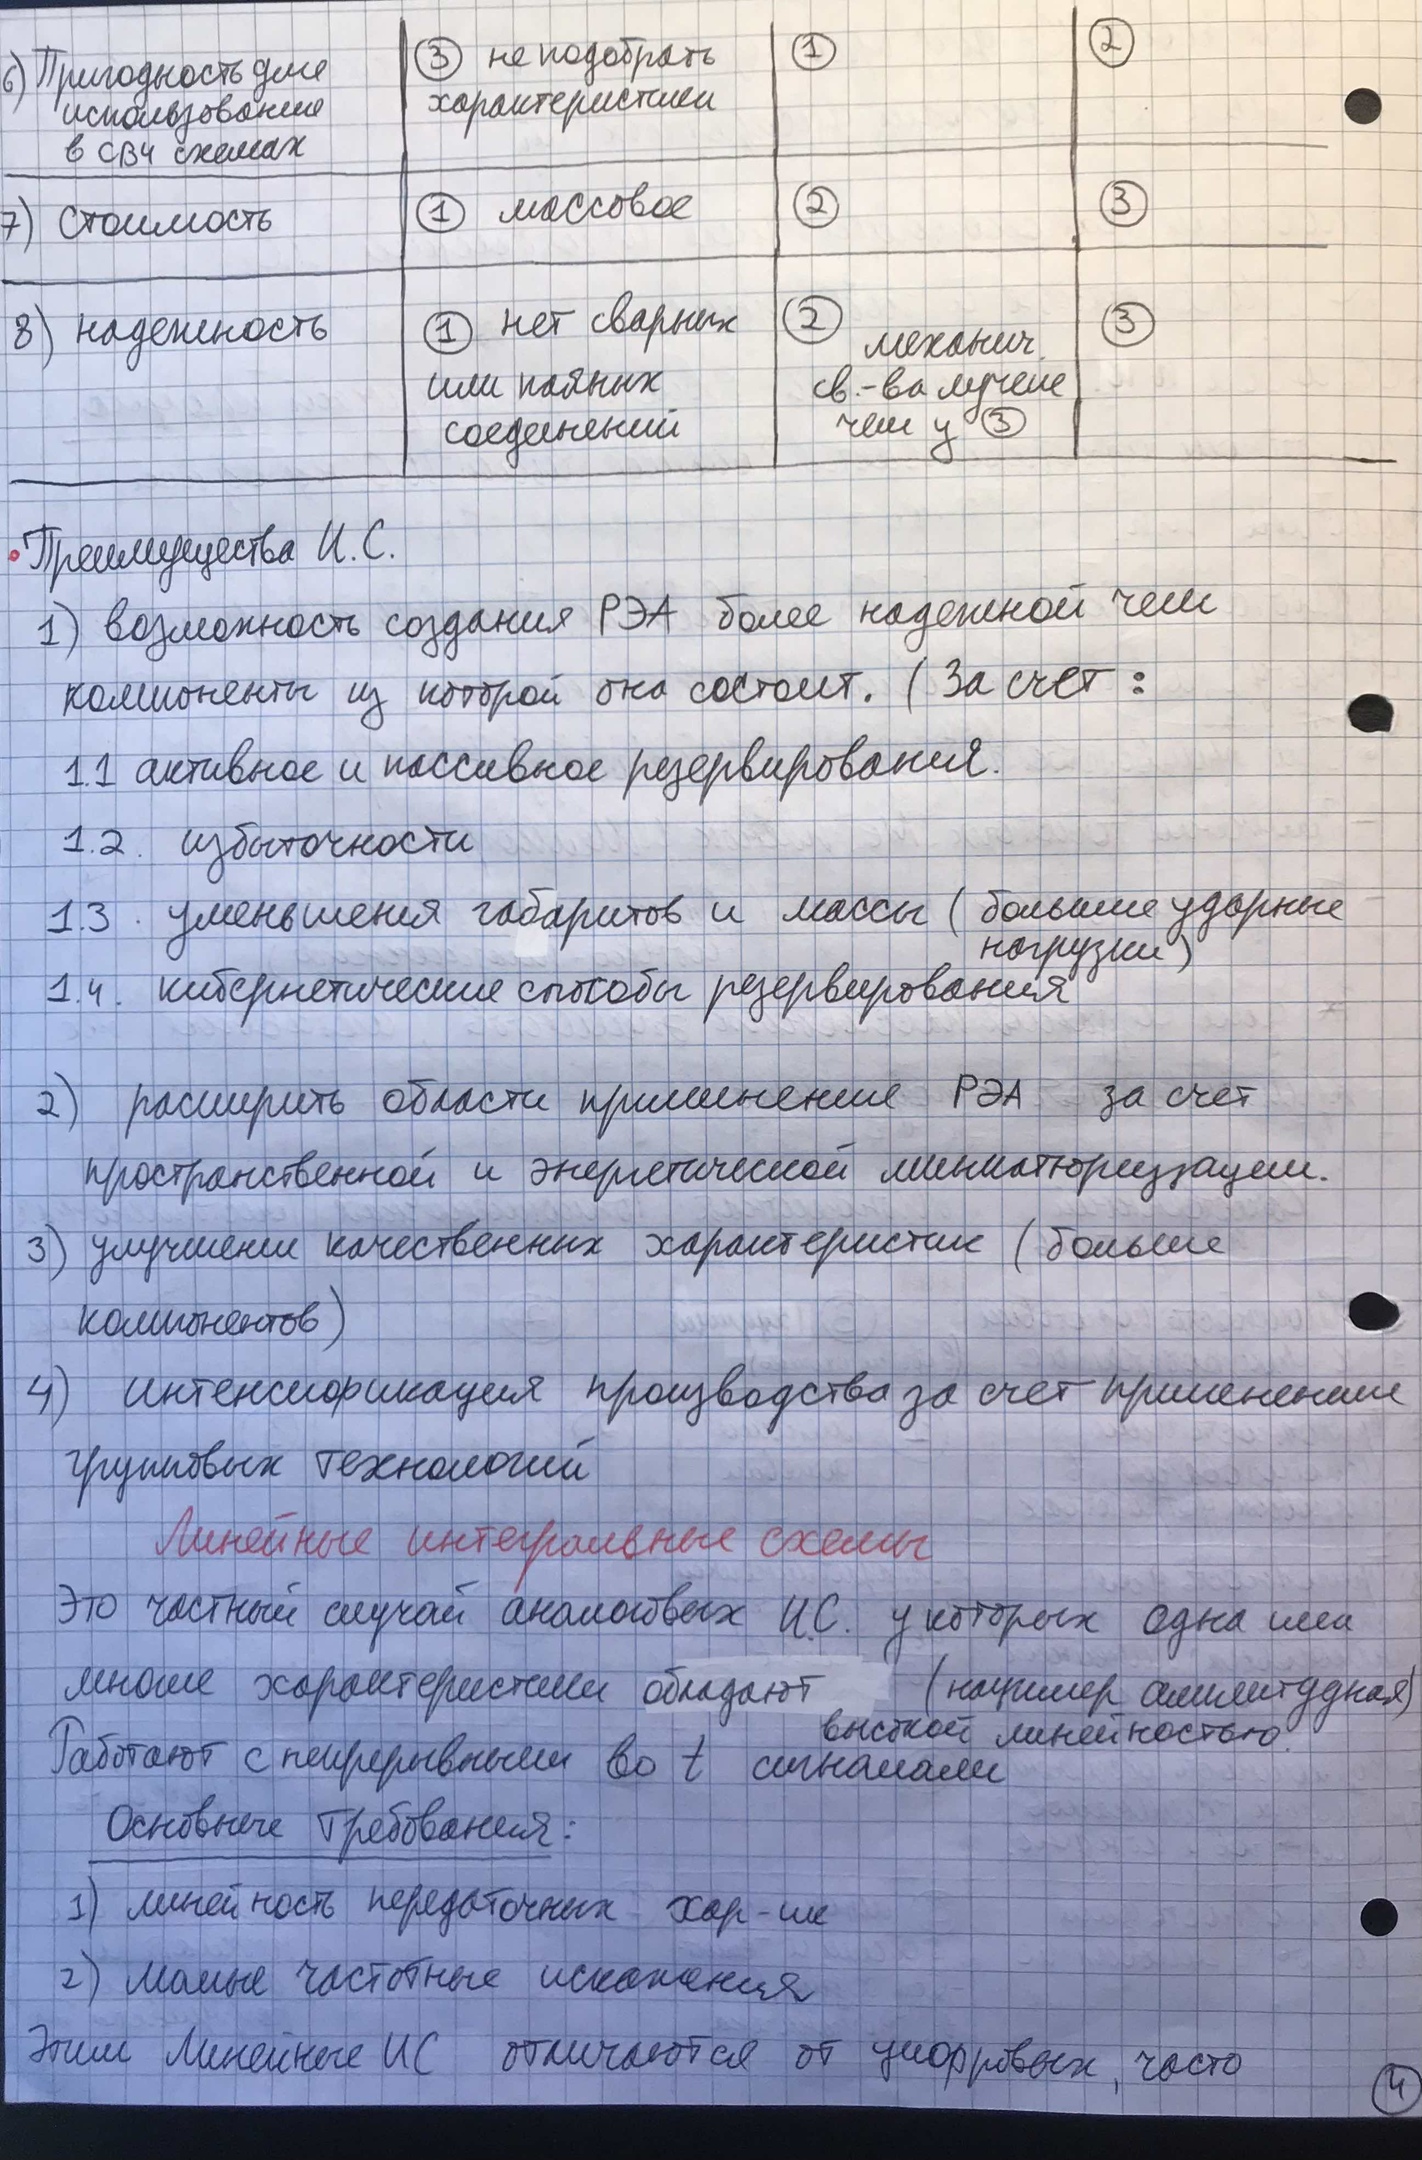 6) Пригодность для ③ не подобрать ① ②
использования характеристики
в СВЧ схемах
7) Стоимость ① массовое ② ③
8) надежность ① нет сварных ② механич. ③
или паяных св.-ва лучше
соединений чем у ③
Преимущества И.С.
1) возможность создания РЭА более надежной чем
компоненты из которой она состоит. (За счет:
1.1 активное и пассивное резервирования.
1.2. избыточности
1.3. уменьшения габаритов и массы (большие ударные
нагрузки)
1.4. кибернетические способы резервирования
2) расширить области применение РЭА за счет
пространственной и энергетической миниатюризации.
3) улучшении качественных характеристик (больше
компонентов)
4) интенсификация производства за счет применение
групповых технологий
Линейные интегральные схемы
Это частный случай аналоговых И.С. у которых одна или
многие характеристики обладают (например амплитудная)
высокой линейностью.
Работают с непрерывными во t сигналами
Основные требования:
1) линейность передаточных хар-ик
2) малые частотные искажения
Этим Линейные ИС отличаются от цифровых, часто
4